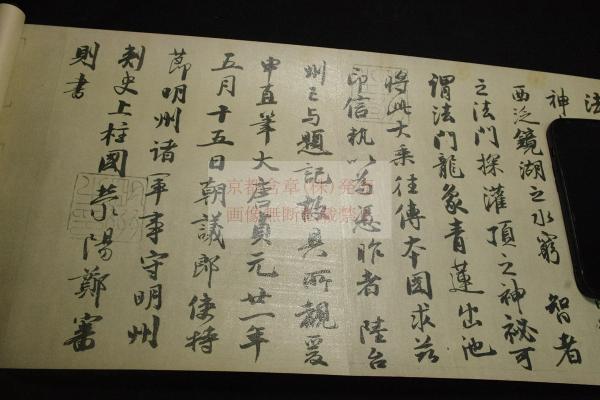 法
神 智者
西泛鏡湖之水窮
之法門探灌頂之神秘可
謂法門龍象青蓮出池
將此大乘往傳本國求茲
印信執以為憑昨者陸台
州已与題記故具所覯爰
申直筆大唐貞元廿一年
五月十五日朝議郎使持
節明州諸軍事守明州
刺史上柱國滎陽鄭審
則書
京都含章(株)発行
画像無断転載禁止